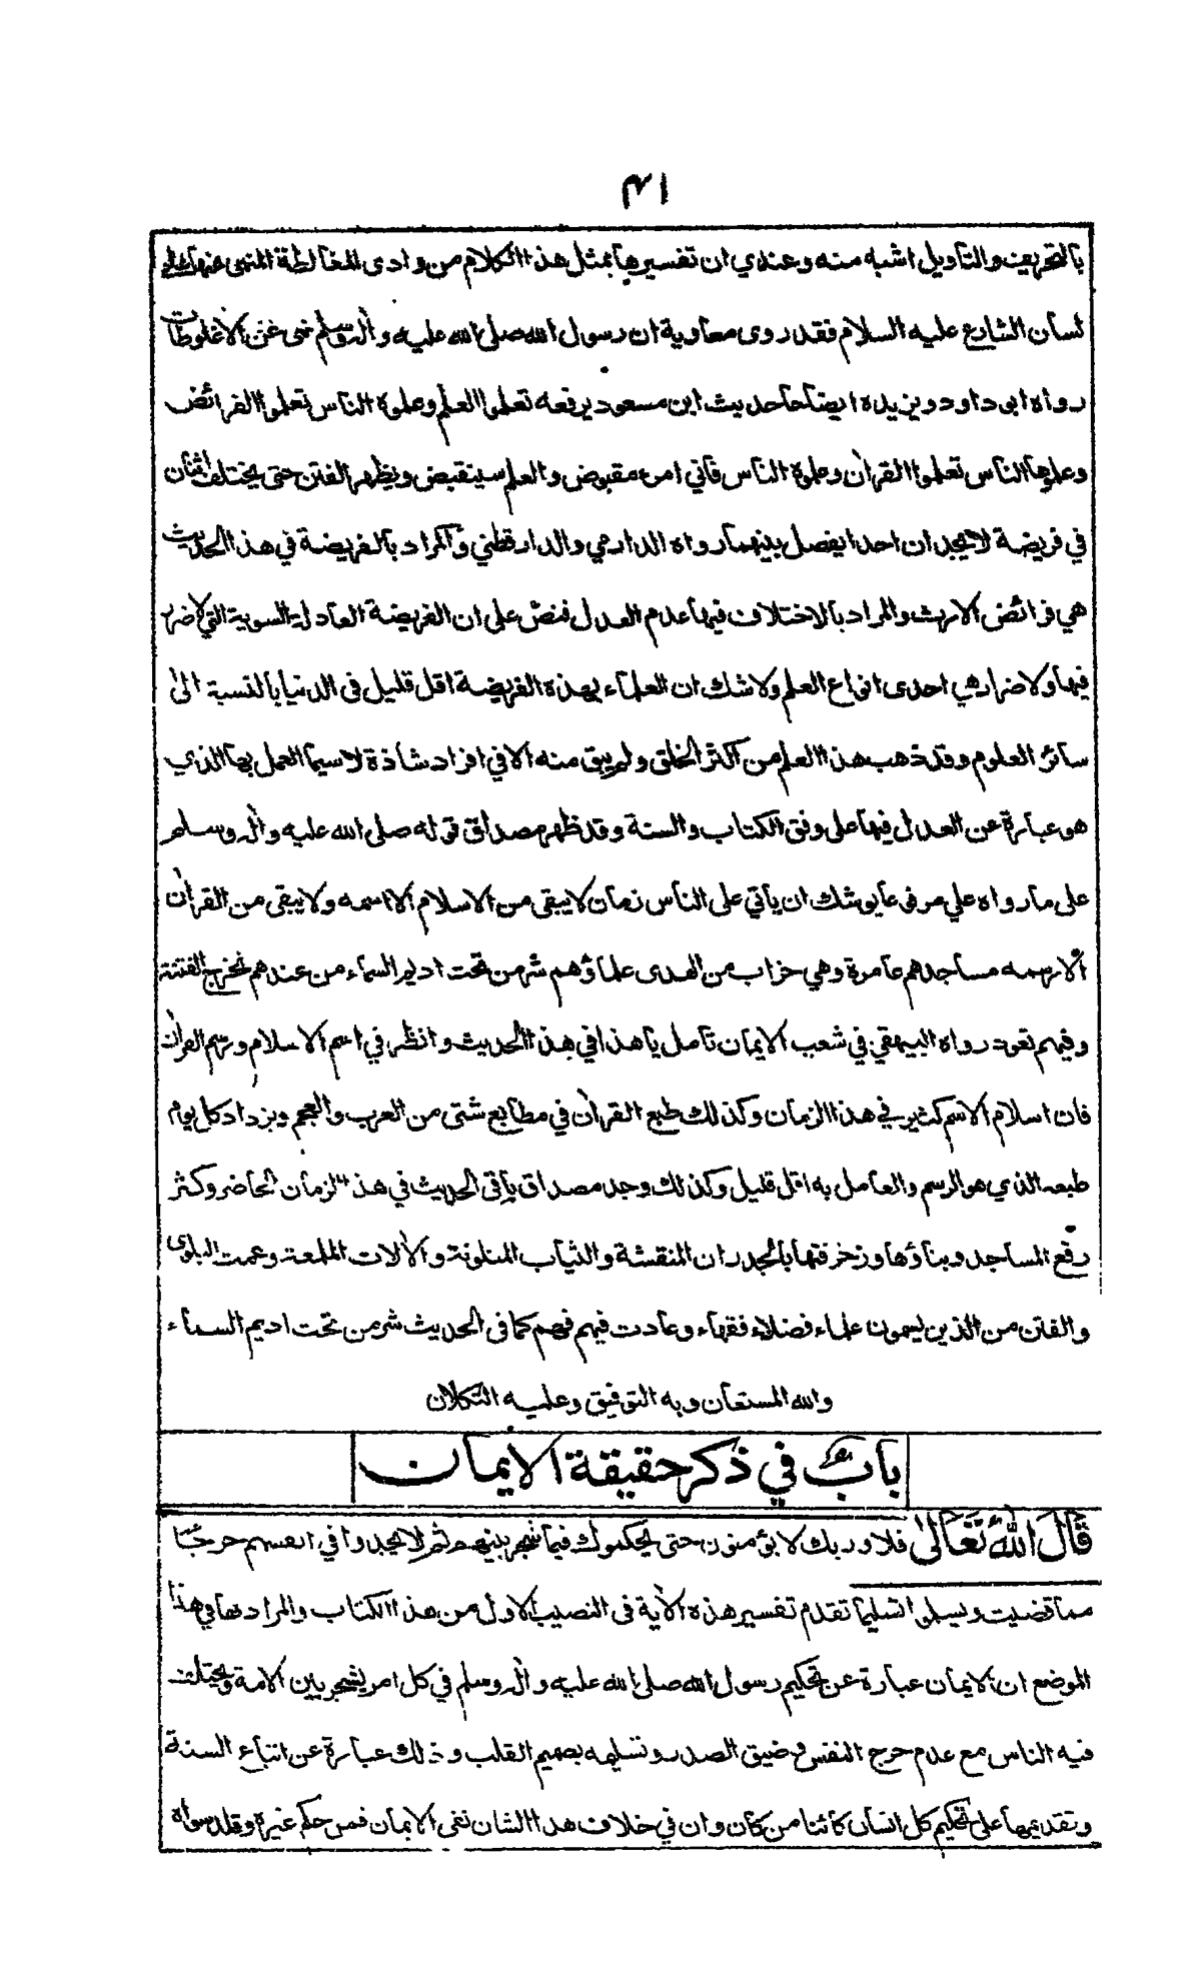 ٤١
بالتحريف والتأويل اشبه منه وعندي ان تفسيرها بمثل هذا الكلام من وادى المغالطة المنهى عنها على
لسان الشارع عليه السلام فقد روى معاوية ان رسول الله صلى الله عليه وآله وسلم نهى عن الاغلوطات
رواه ابو داود ويزيده ايضاحا حديث ابن مسعود يرفعه تعلموا العلم وعلموه الناس تعلموا الفرائض
وعلموها الناس تعلموا القران وعلموه الناس فاني امرء مقبوض والعلم سينقبض ويظهر الفتن حتى يختلف اثنان
في فريضة لا يجدان احدا يفصل بينهما رواه الدارمي والدارقطني والمراد بالفريضة في هذا الحديث
هي فرائض الارث والمراد بالاختلاف فيها عدم العدل فنص على ان الفريضة العادلة السوية التي لا ضرر
فيها ولا ضرار هي احدى انواع العلم ولا شك ان العلماء بهذه الفريضة اقل قليل فى الدنيا بالنسبة الى
سائر العلوم وقد ذهب هذا العلم من اكثر الخلق ولم يبق منه الا في افراد شاذة لا سيما العمل بها الذي
هو عبارة عن العدل فيها على وفق الكتاب والسنة وقد ظهر مصداق قوله صلى الله عليه واله وسلم
على ما رواه علي مرفوعا يوشك ان يأتي على الناس زمان لا يبقى من الاسلام الا اسمه ولا يبقى من القران
الا رسمه مساجدهم عامرة وهي خراب من الهدى علماؤهم شر من تحت اديم السماء من عندهم تخرج الفتنة
وفيهم تعود رواه البيهقي في شعب الايمان تأمل يا هذا في هذا الحديث وانظر في اسم الاسلام ورسم القران
فان اسلام الاسم كثير في هذا الزمان وكذلك طبع القران في مطابع شتى من العرب والعجم ويزداد كل يوم
طبعه الذي هو الرسم والعامل به اقل قليل وكذلك وجد مصداق باقي الحديث في هذا الزمان الحاضر وكثر
رفع المساجد وبناؤها وزخرفتها بالجدران المنقشة والثياب المتلونة والالات الملمعة وعمت البلوى
والفتن من الذين يسمون علماء فضلاء فقهاء وعادت فيهم فهم كما فى الحديث شر من تحت اديم السماء
والله المستعان وبه التوفيق وعليه التكلان
باب في ذكر حقيقة الايمان
قال الله تعالى فلا وربك لا يؤمنون حتى يحكموك فيما شجر بينهم ثم لا يجدوا في انفسهم حرجا
مما قضيت ويسلموا تسليما تقدم تفسير هذه الآية فى النصيب الاول من هذا الكتاب والمراد بها في هذا
الموضع ان الايمان عبارة عن تحكيم رسول الله صلى الله عليه واله وسلم في كل امر يشجر بين الامة ويختلف
فيه الناس مع عدم حرج النفس وضيق الصدر وتسليمه بصميم القلب وذلك عبارة عن اتباع السنة
وتقديمها على تحكيم كل انسان كائنا من كان وان في خلاف هذا الشان نفى الايمان فمن حكم غيره وقلد سواه